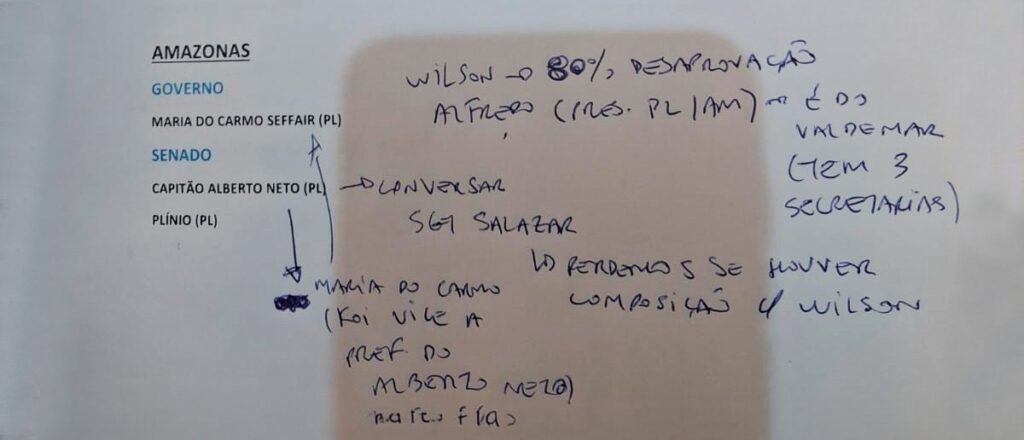 AMAZONAS
GOVERNO
MARIA DO CARMO SEFFAIR (PL)
SENADO
CAPITÃO ALBERTO NETO (PL)
PLÍNIO (PL)
WILSON → 80% DESAPROVAÇÃO
ALFREDO (PRES. PL/AM) → É DO
VALDEMAR
(TEM 3
SECRETARIAS)
→ CONVERSAR
SGT SALAZAR
↳ PERDEMOS SE HOUVER
COMPOSIÇÃO C/ WILSON
MARIA DO CARMO
(FOI VICE A
PREF. DO
ALBERTO NETO)